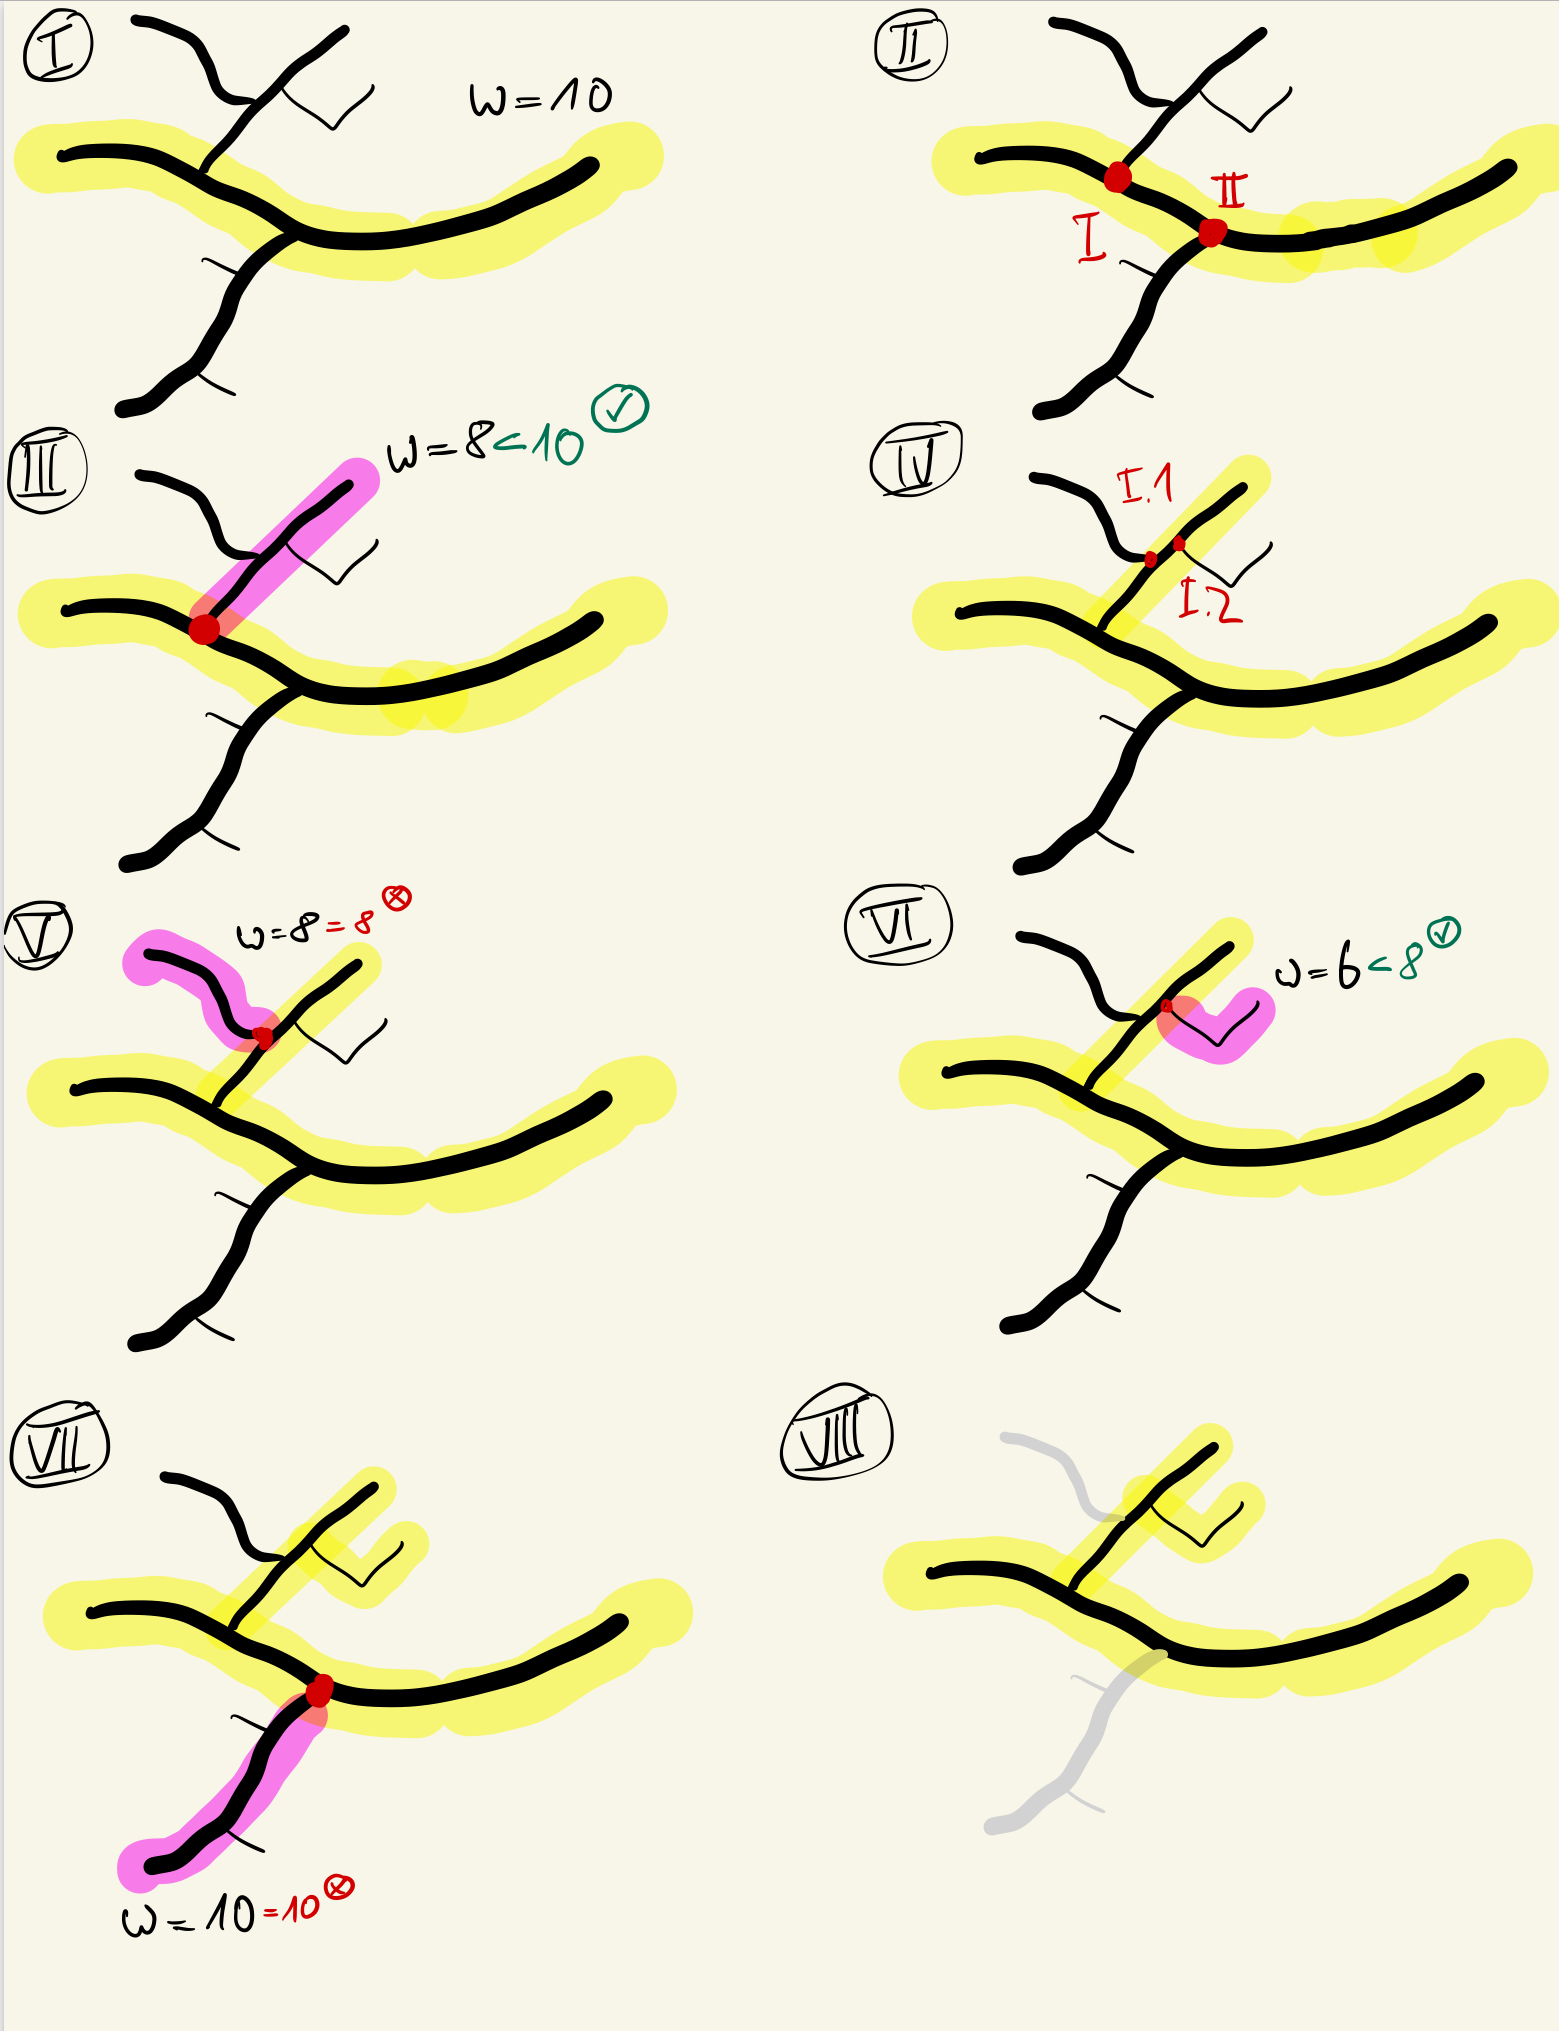 I
w=10
II
I
II
III
w=8<10
IV
I.1
I.2
V
w=8=8
VI
w=6<8
VII
w=10=10
VIII